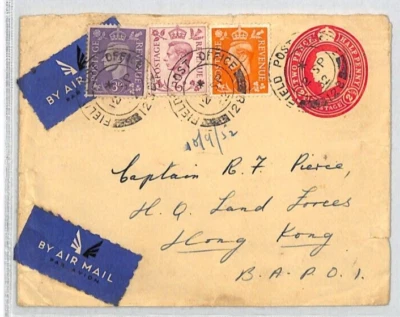 FIELD POST OFFICE
128
FIELD POST OFFICE
128
FIELD POST
SP
TWO PENCE HALFPENNY
POSTAGE REVENUE
3D
REVENUE
REVENUE
BY AIR MAIL
PAR AVION
Captain R. F. Pierce,
H.Q. Land Forces
Hong Kong
B.A.P.O.1
BY AIR MAIL
PAR AVION